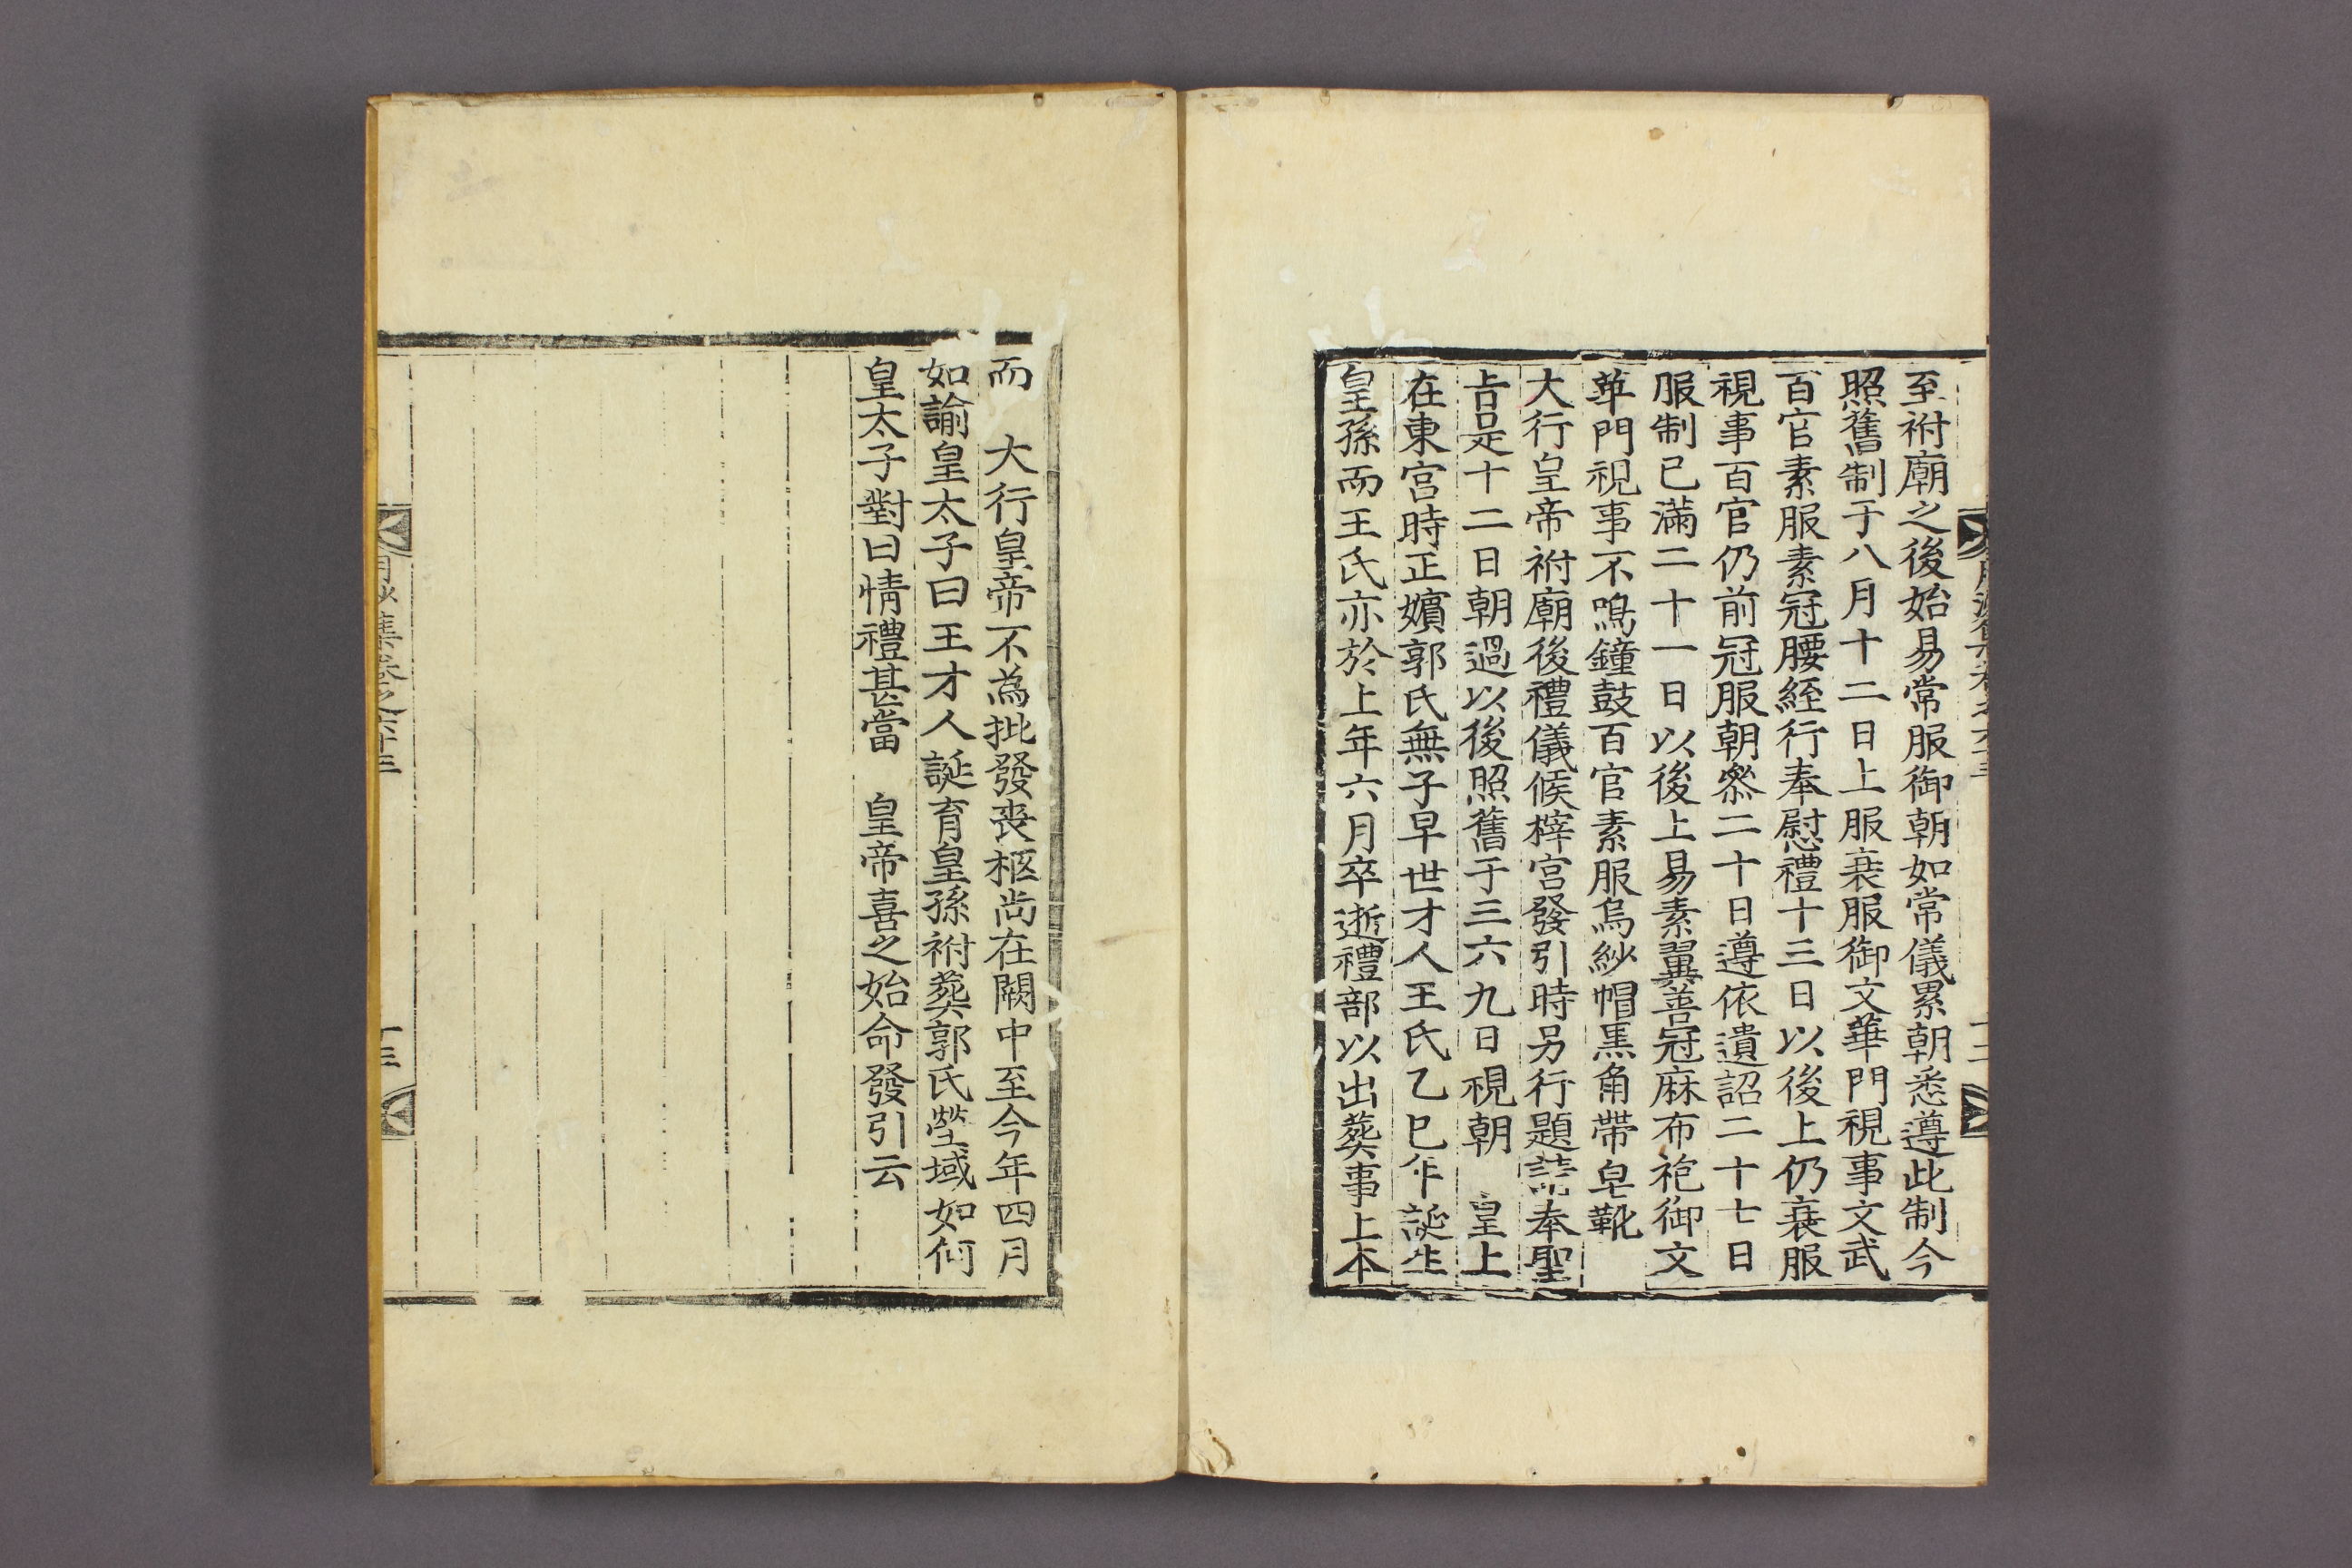 至祔廟之後始易常服御朝如常儀累朝悉遵此制今
照舊制于八月十二日上服衰服御文華門視事文武
百官素服素冠腰絰行奉慰禮十三日以後上仍衰服
視事百官仍前冠服朝叅二十日遵依遺詔二十七日
服制已滿二十一日以後上易素翼善冠麻布袍御文
華門視事不鳴鐘鼓百官素服烏紗帽黑角帶皂靴
大行皇帝祔廟後禮儀候梓宮發引時另行題請奉聖
旨是十二日朝過以後照舊于三六九日視朝　皇上
在東宮時正嬪郭氏無子早世才人王氏乙巳年誕生
皇孫而王氏亦於上年六月卒逝禮部以出葬事上本
而　大行皇帝不爲批發喪柩尚在闕中至今年四月
如諭皇太子曰王才人誕育皇孫祔葬郭氏塋域如何
皇太子對曰情禮甚當　皇帝喜之始命發引云
月沙集卷之六十三
十三